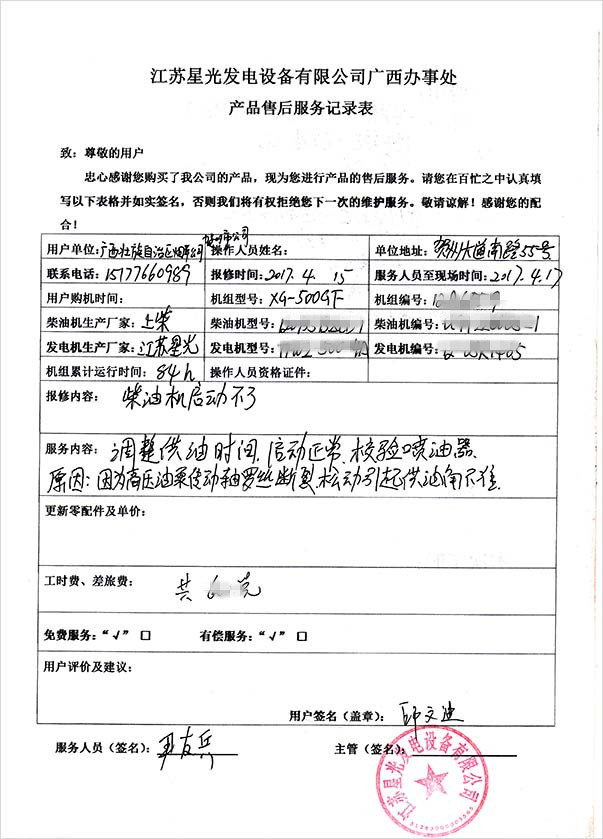 江苏星光发电设备有限公司广西办事处
产品售后服务记录表
致：尊敬的用户
忠心感谢您购买了我公司的产品，现为您进行产品的售后服务。请您在百忙之中认真填
写以下表格并如实签名，否则我们将有权拒绝您下一次的维护服务。敬请谅解！感谢您的配
合！
用户单位：广西壮族自治区 操作人员姓名： 单位地址：贺州大道南路55号
联系电话：15177660989 报修时间：2017.4.15 服务人员至现场时间：2017.4.17
用户购机时间： 机组型号：XG-500GF 机组编号：
柴油机生产厂家：上柴 柴油机型号： 柴油机编号：
发电机生产厂家：江苏星光 发电机型号： 发电机编号：
机组累计运行时间：84h 操作人员资格证件：
报修内容：柴油机启动不了
服务内容：调整供油时间，启动正常，校验喷油器。
原因：因为高压油泵传动轴罗丝断裂，松动引起供油角不准。
更新零配件及单价：
工时费、差旅费： 共 元
免费服务：“√” □ 有偿服务：“√” □
用户评价及建议：
用户签名（盖章）：邱文迪
服务人员（签名）： 友兵 主管（签名）：
江苏星光发电设备有限公司